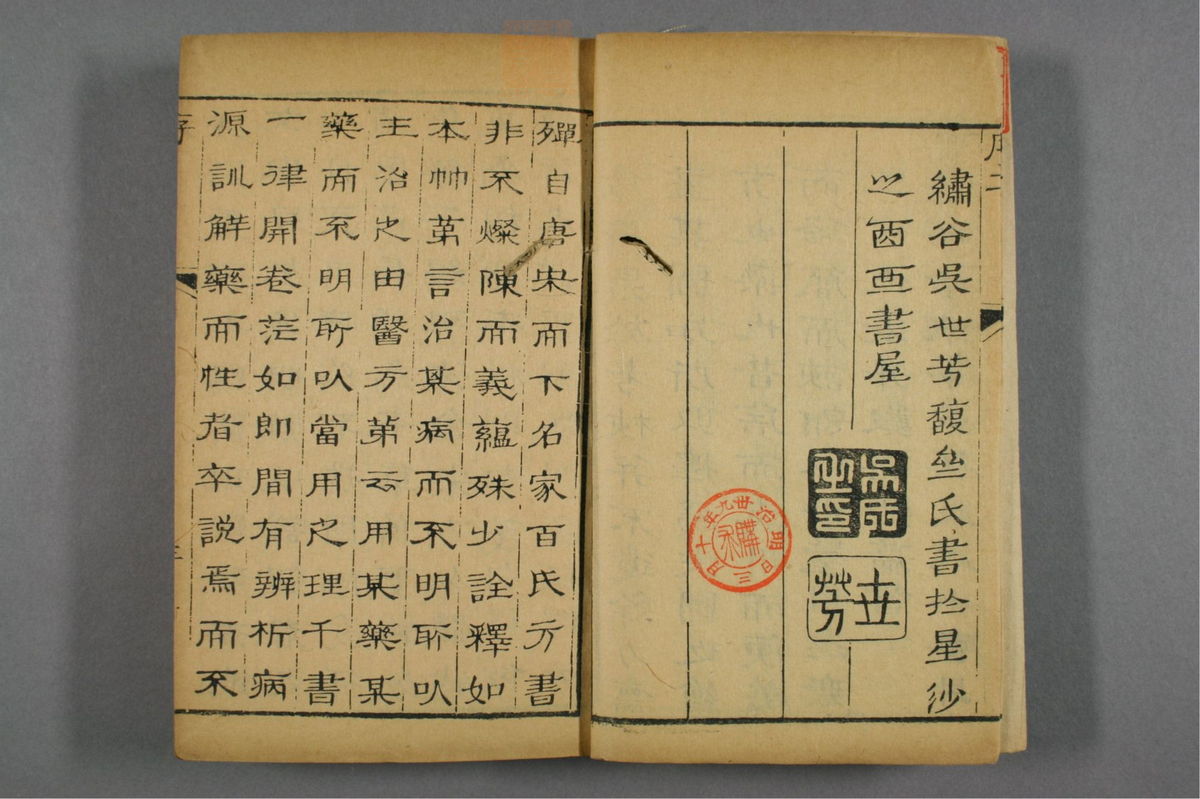 繡谷吳世芳馥垒氏書扵星沙
之酉書屋
之印
世芳
明治丗九年十月三日
購求
殫自唐宋而下名家百氏方書
非不燦陳而義蘊殊少詮釋如
本艸苐言治某病而不明所以
主治之由醫方苐云用某藥某
藥而不明所以當用之理千書
一律開卷茫如即間有辨析病
源訓解藥而性者卒說焉而不